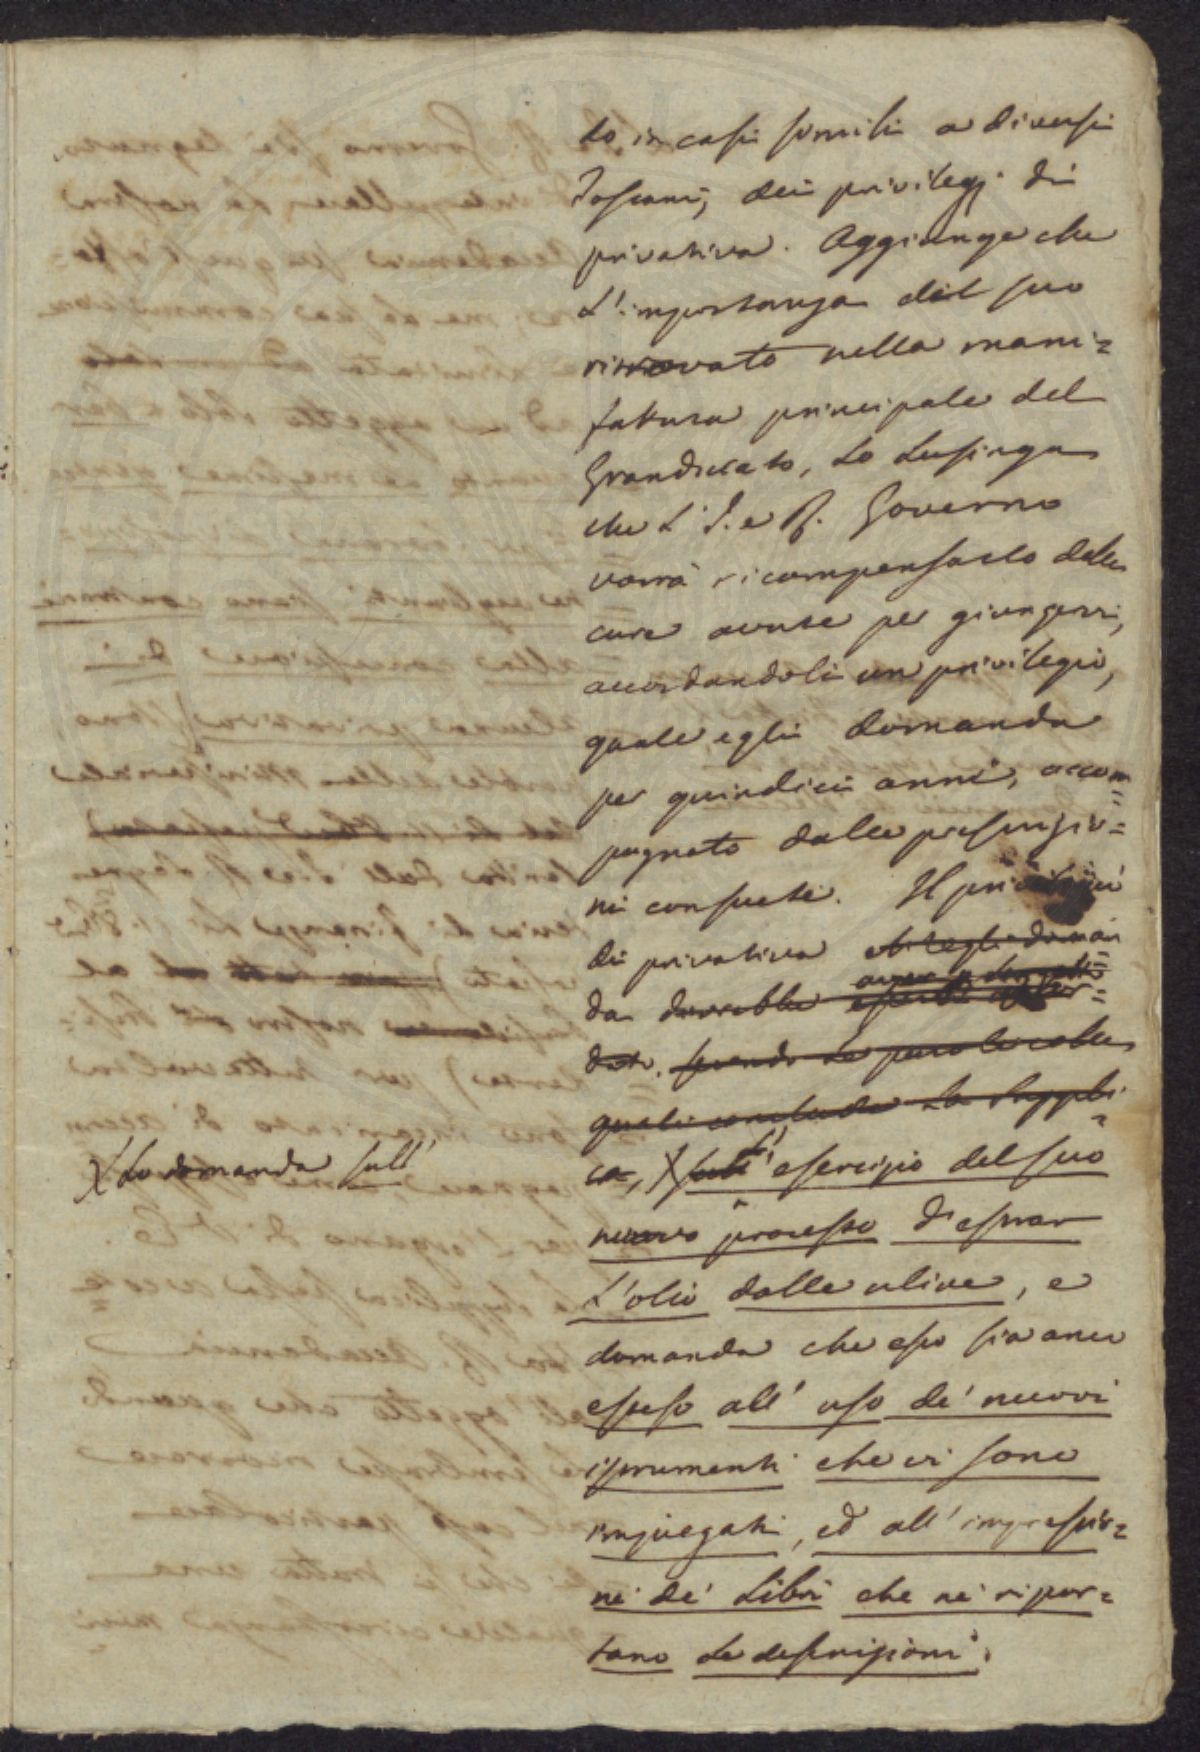 to in casi simili a diversi
Toscani, dei privilegj di
privativa. Aggiunge che
L'importanza del suo
ritrovato nella mani=
fattura principale del
Granducato, Lo Lusinga
che L'I. e R. Governo
vorrà ricompensarlo delle
cure avute per giungervi,
accordandoli un privilegio,
quale egli domanda
per quindici anni, accom=
pagnato dalle prescrizio=
ni consuete. Il
di privativa ch'egli doman
da dovrebbe
dato. secondo Le parole colle
quali conclude La Suppli
ca, X sull' L' esercizio del suo
X Lo domanda sull'
nuovo processo d'estrar
L'olio dalle ulive, e
domanda che esso sia anco
esteso all' uso de' nuovi
istrumenti che vi sono
impiegati, ed all' impressio=
ne de' Libri che ne ripor=
tano Le descrizioni.